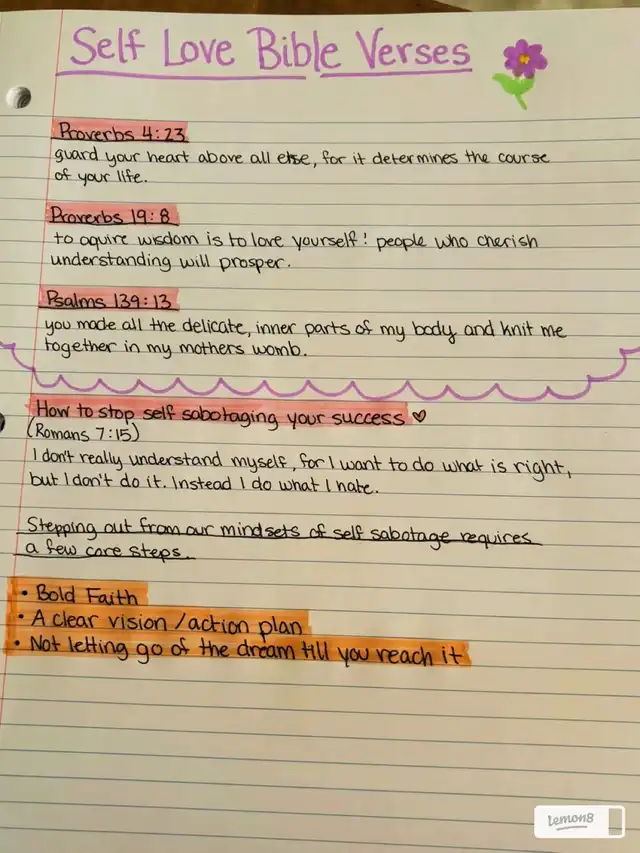 Self Love Bible Verses
Proverbs 4:23
guard your heart above all else, for it determines the course
of your life.
Proverbs 19:8
to aquire wisdom is to love yourself! people who cherish
understanding will prosper.
Psalms 139:13
you made all the delicate, inner parts of my body and knit me
together in my mothers womb.
How to stop self sabotaging your success ♡
(Romans 7:15)
I don't really understand myself, for I want to do what is right,
but I don't do it. Instead I do what I hate.
Stepping out from our mindsets of self sabotage requires
a few core steps.
• Bold Faith
• A clear vision/action plan
• Not letting go of the dream till you reach it
Lemon8